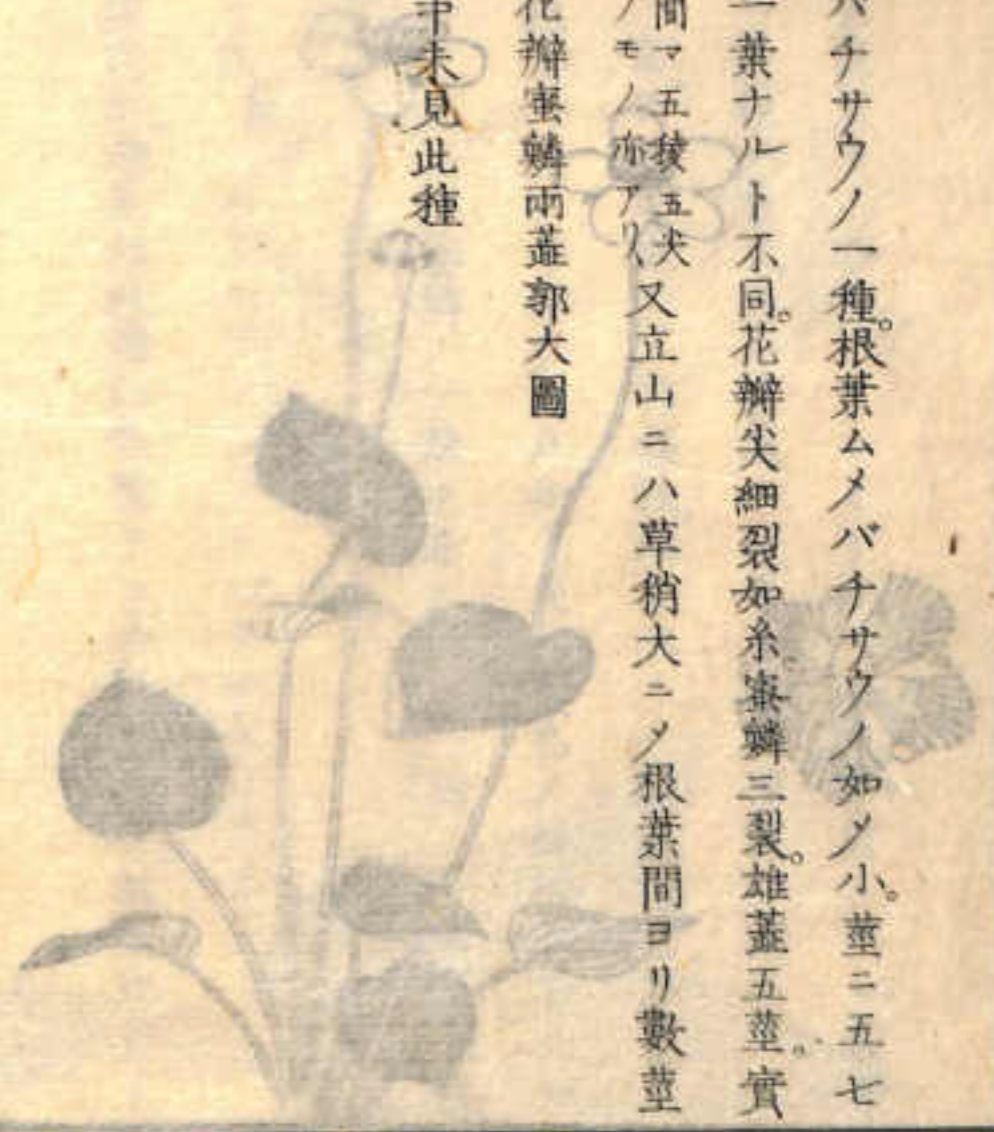 バチサウノ一種。根葉ムメバチサウノ如メ小。莖ニ五七
一葉ナルト不同。花瓣尖細裂如糸蜜鱗三裂。雄蕋五莖。實
間マ五稜五尖
ノモノ亦アリ、又立山ニハ草稍大ニメ根葉間ヨリ數莖
花瓣蜜鱗兩蕋郭大圖
中未見此種